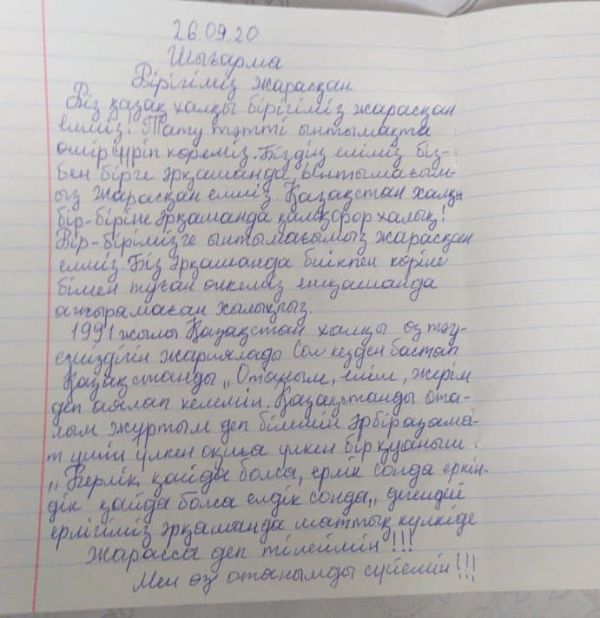 26.09.20
Шығарма
Бірігіміз жарасқан
Біз қазақ халқы бірігіміз жарасқан
елміз! Тату тәтті ынтымақта
өмір сүріп көреміз. Біздің еліміз біз-
бен бірге әрқашанда, Ынтымағым-
ыз жарасқан елміз. Қазақстан халқы
бір-біріне әрқашанда қамқорор халық!
Бір-бірімізге ынтымағымыз жарасқан
елміз. Біз әрқашанда биікпен көріне
білмен туған өлкеміз ешқашанда
ажырамаған халықпыз.
1991 жылы Қазақстан халқы өз тәу-
елсіздігін жариялады Сол кезден бастап
Қазақстанды „Отаным, елім, жерім
деп аялап келемін. Қазақстанды ота-
ным жұртым деп білетін әрбір азама-
т үшін үлкен оқиға үлкен бір қуаныш.
„Бірлік қайда болса, ерлік сонда еркін-
дік қайда болса елдік сонда„ дегендей
ерлігіміз әрқашанда шаттық күлкіде
жарасса деп тілеймін!!!
Мен өз отанымды сүйемін!!!